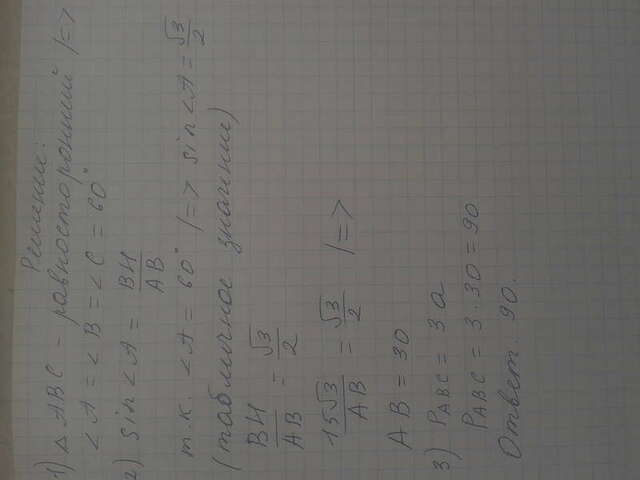 Решение:
1) △ ABC - равносторонний |=>
<A = <B = <C = 60°
2) sin<A = BH/AB
т.к. <A = 60° |=> sin<A = √3/2
(табличное значение)
BH/AB = √3/2
15√3/AB = √3/2 |=>
AB = 30
3) P_ABC = 3a
P_ABC = 3·30 = 90
Ответ. 90.